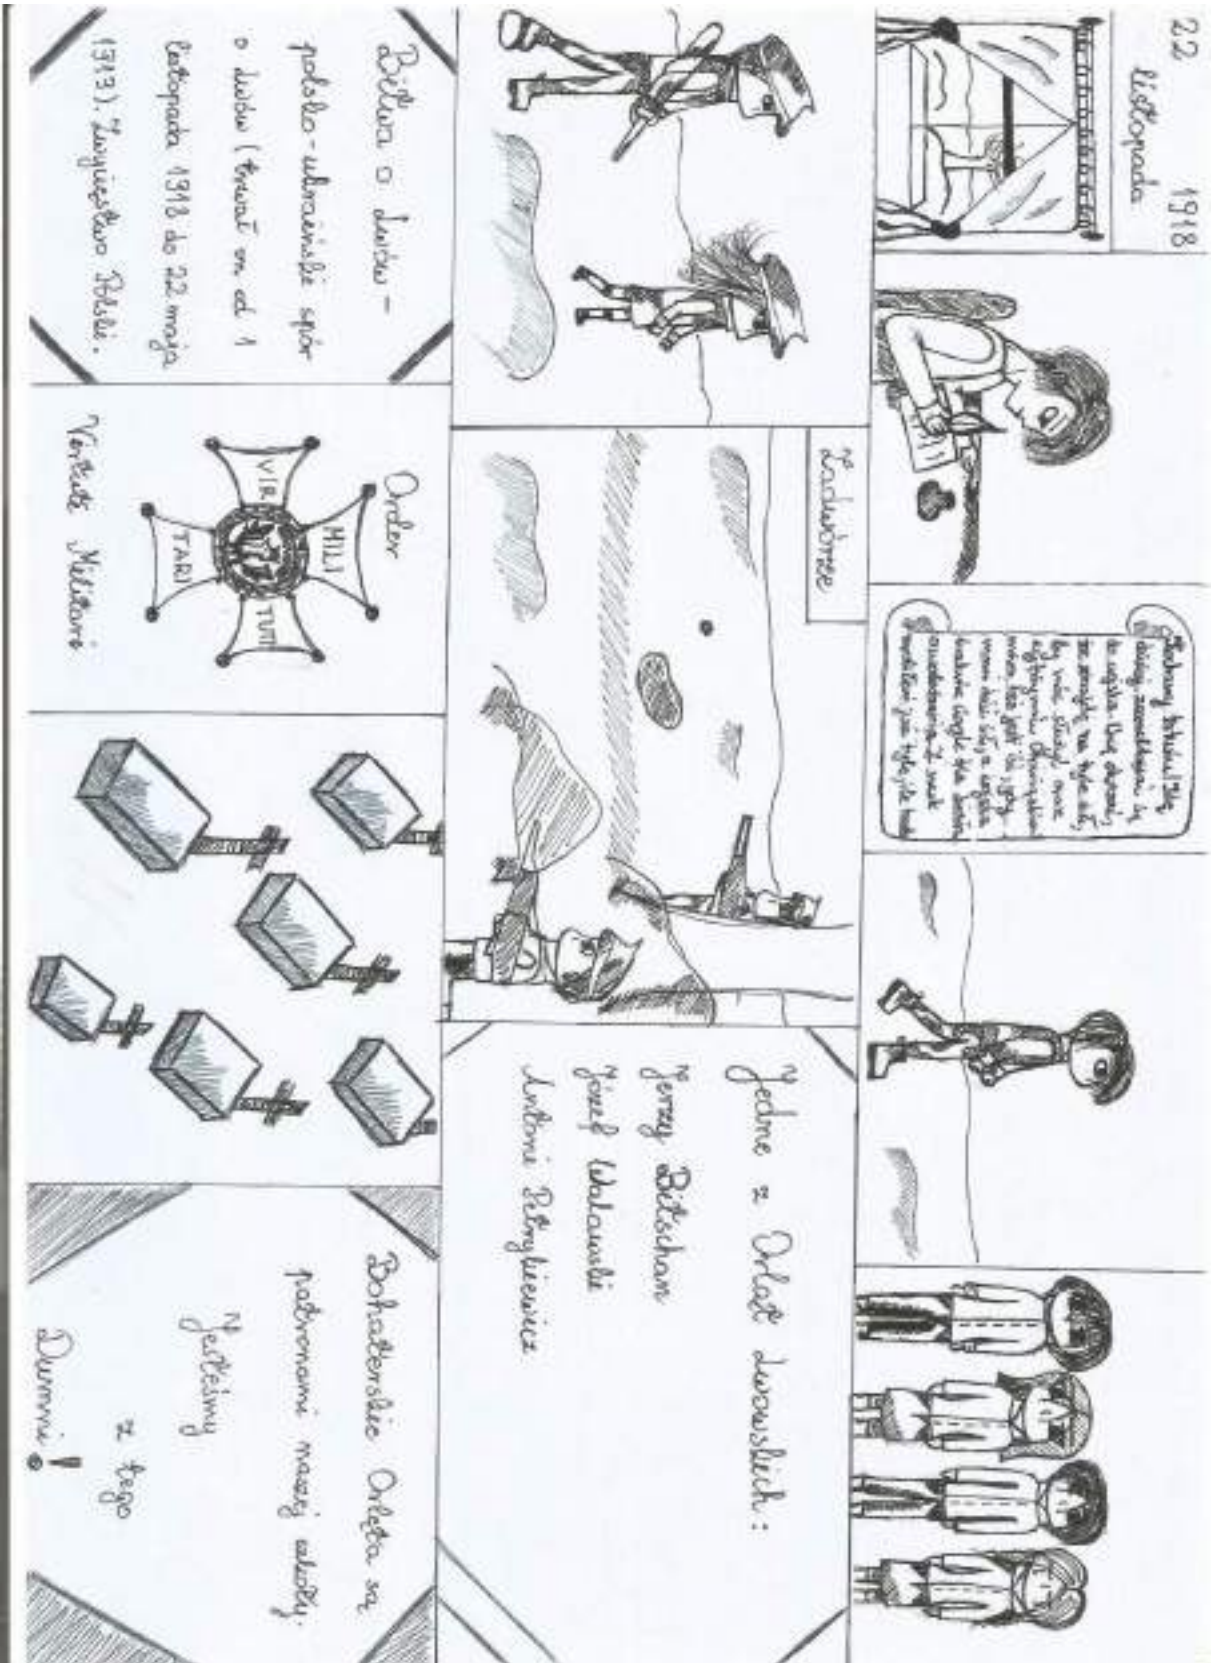 22 listopada 1918
Kochany tatusiu! Idę
dzisiaj zameldować się
do wojska. Chcę okazać,
że znajdę na tyle sił,
by móc służyć oraz
wytrzymać. Obowiązkiem
moim też jest iść, gdy
mam dość sił, a wojska
brakuje ciągle dla
oswobodzenia. Z nauk
zrobiłem już tyle, ile
Zadwórze
Jedne z Orląt Lwowskich:
Jerzy Bitschan
Józef Walawski
Antoni Petrykiewicz
Bitwa o Lwów -
polsko-ukraiński spór
o Lwów (trwał on od 1
listopada 1918 do 22 maja
1919). Zwycięstwo Polski.
Order
VIR MILI TUTI TARI
Virtuti Militari
Bohaterskie Orlęta są
patronami naszej szkoły.
Jesteśmy
z tego
Dumni!